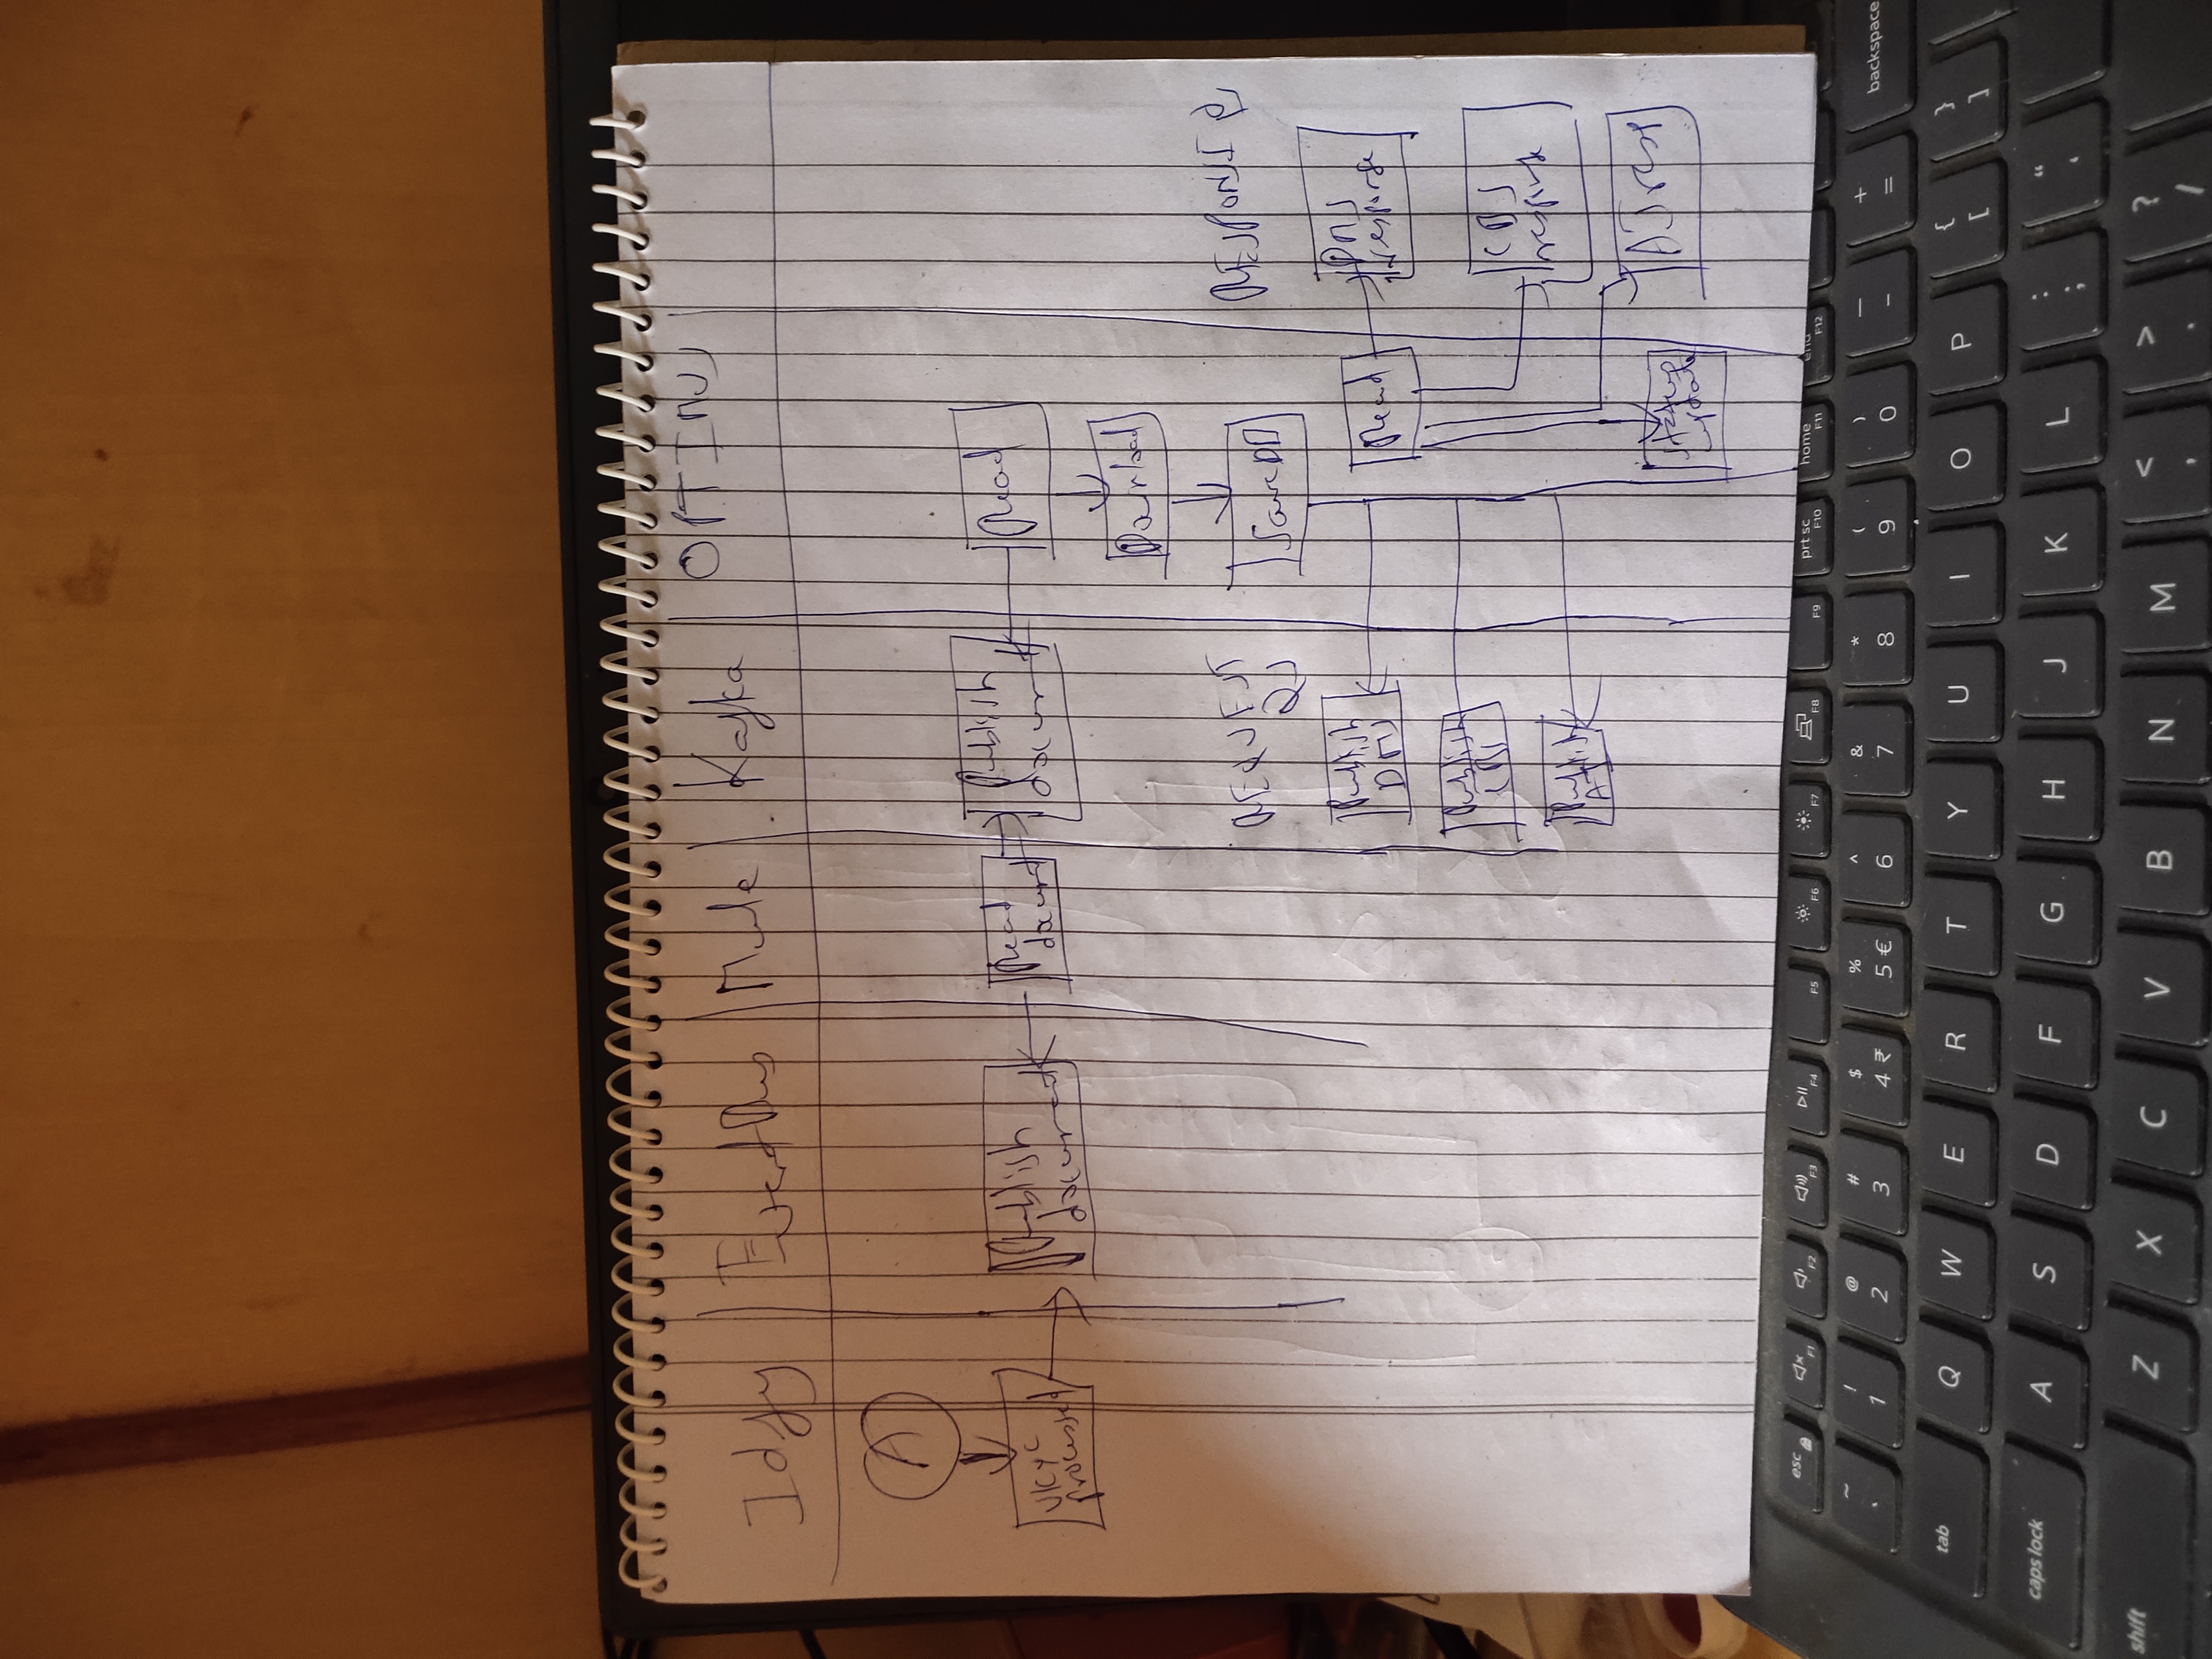 Idfy
EventBus
Mule
Kafka
OPTIMUS
A
VKYC
processed
Publish
document
Read
document
Publish
document
Read
Download
Save DB
REQUEST
QS
RESPONSE QS
Publish
DMS
Read
DMS
response
Publish
CBS
CBS
response
Publish
status
update
resp
esc
F1
F2
F3
F4
F5
F6
F7
F8
F9
prt sc
F10
home
F11
end
F12
~ ! @ # $ % ^ & * ( ) — +
` 1 2 3 4 ₹ 5 € 6 7 8 9 0 - = backspace
tab Q W E R T Y U I O P { [ } ]
caps lock A S D F G H J K L : ; " '
shift Z X C V B N M < , > . ? /